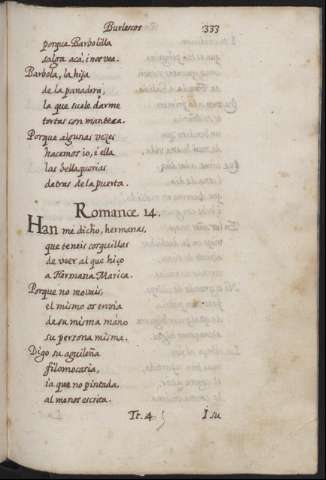 Burlescos 333
porque Barbolilla
salga acá, i nos vea.
Barbola, la hija
de la panadera,
la que suele darme
tortas con manteca.
Porque algunas vezes
hacemos io, i ella
las bellaquerias
detras de la puerta.
Romance 14.
Han me dicho, hermanas,
que teneis cosquillas
de ver al que hiço
a Hermana Marica.
Porque no moxais,
el mismo os envia
de su misma mano
su persona misma.
Digo su aguileña
filomocosia,
ia que no pintada,
al menos escrita.
Tt. 4 I su